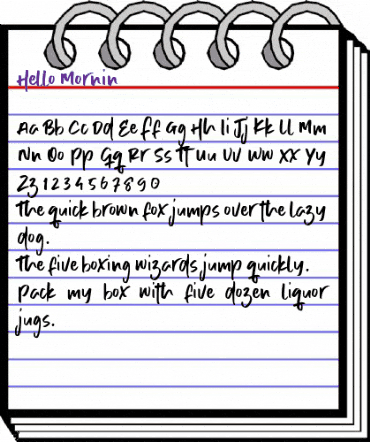 Hello Mornin
Aa Bb Cc Dd Ee Ff Gg Hh Ii Jj Kk Ll Mm
Nn Oo Pp Qq Rr Ss Tt Uu Vv Ww Xx Yy
Zz 1 2 3 4 5 6 7 8 9 0
The quick brown fox jumps over the lazy
dog.
The five boxing wizards jump quickly.
Pack my box with five dozen liquor
jugs.